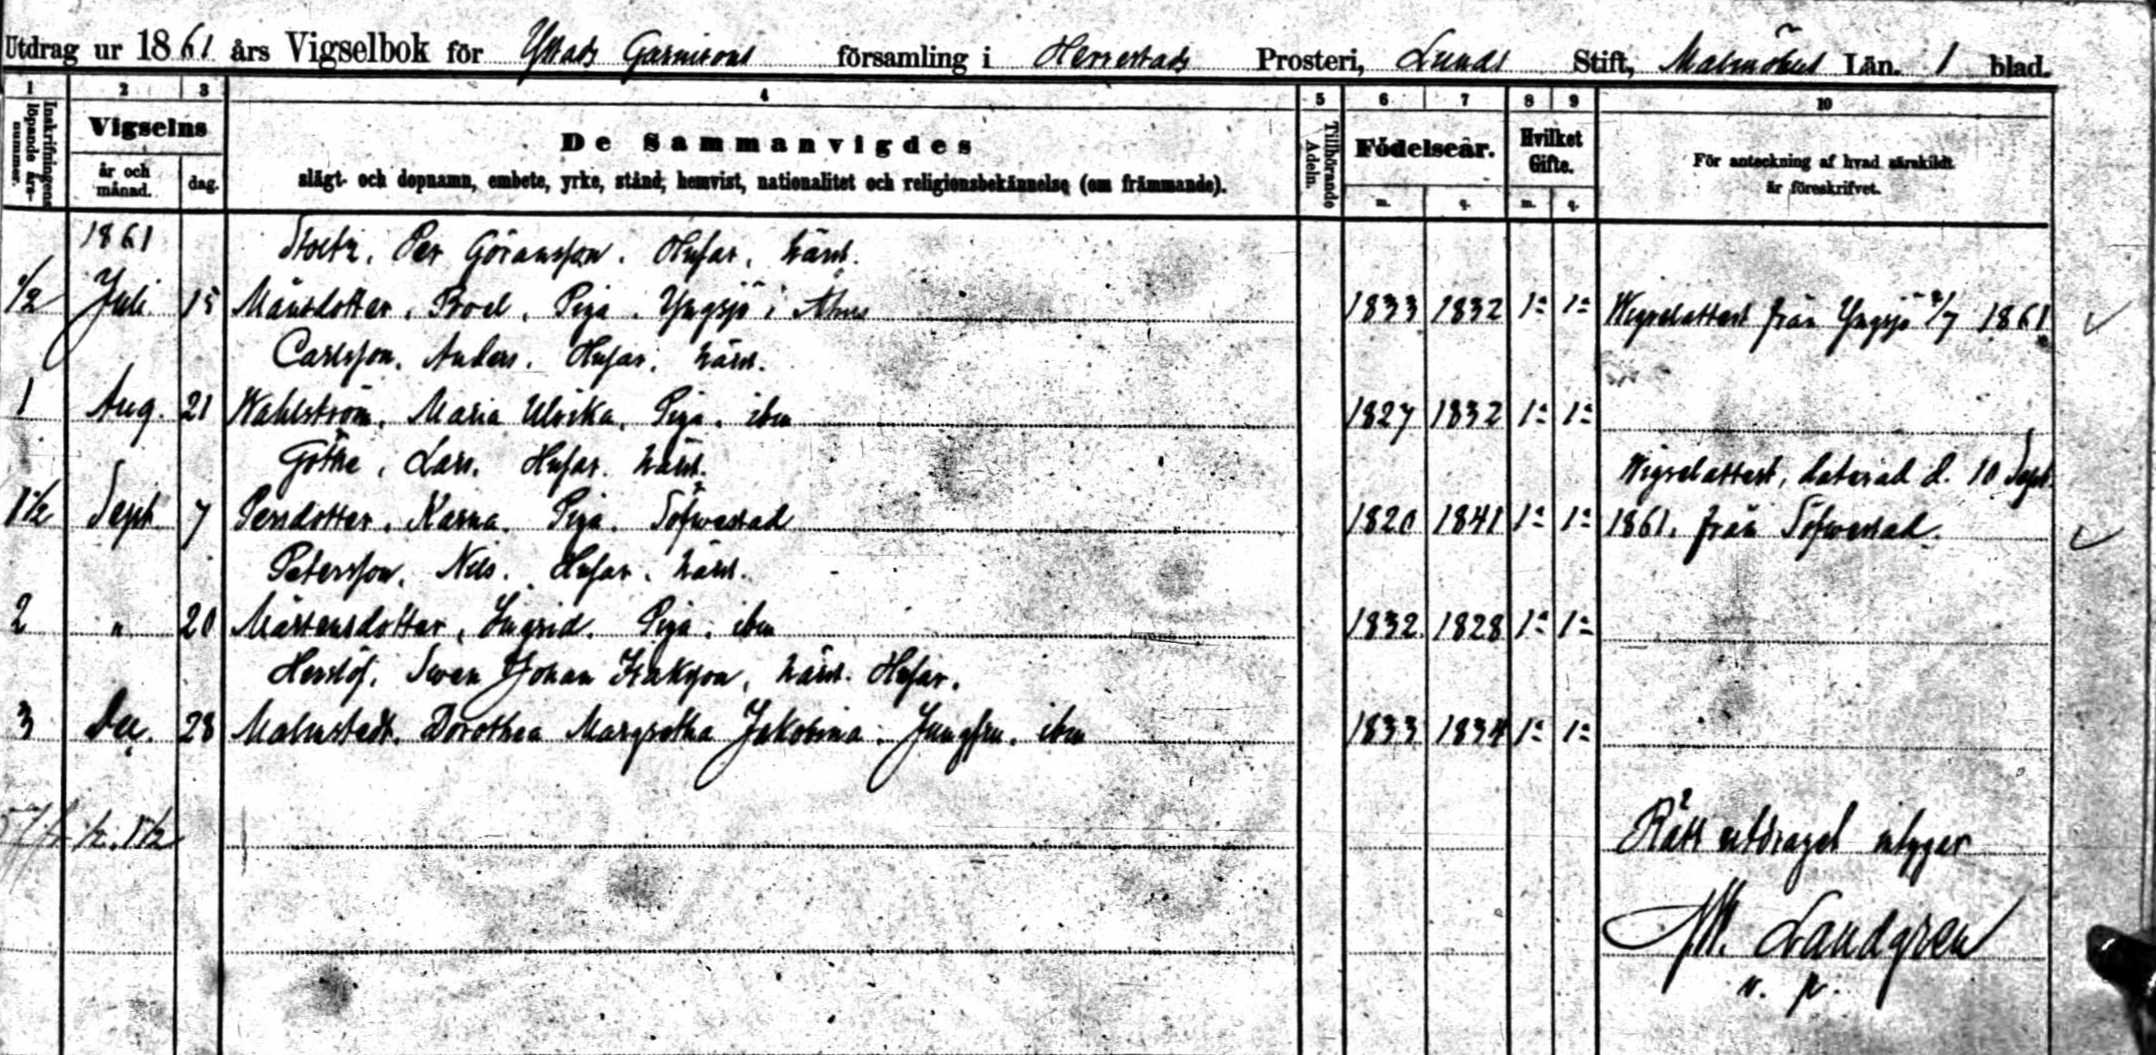 Utdrag ur 1861 års Vigselbok för Ystads Garnisons församling i Herrestads Prosteri, Lunds Stift, Malmöhus Län. 1 blad.
1 2 3 4 5 6 7 8 9 10
Inskrifningens löpande års-nummer.
Vigselns
år och månad. dag.
De Sammanvigdes
slägt- och dopnamn, embete, yrke, stånd, hemvist, nationalitet och religionsbekännelse (om främmande).
Tillhörande Adeln.
Födelseår.
m. q.
Hvilket Gifte.
m. q.
För anteckning af hvad särskildt är föreskrifvet.
1861 Stoltz, Per Göransson. Husar, härst.
1/2 Juli 15 Månsdotter, Boel, Piga, Yngsjö i Åhus 1833 1832 1a 1a Wigselattest från Yngsjö /7 1861
Carlsson, Anders. Husar, härst.
1 Aug. 21 Wahlström, Maria Ulrika, Piga, ibm 1827 1832 1a 1a
Göthe, Lars. Husar. härst. Wigselattest, daterad d. 10 Sept.
1 1/2 Sept. 7 Persdotter, Karna. Piga. Töfwestad 1820 1841 1a 1a 1861. från Töfwestad.
Petersson, Nils. Husar, härst.
2 " 20 Mårtensdotter, Ingrid. Piga. ibm 1832 1828 1a 1a
Herslöf, Swen Johan Isaksson, härst. Husar.
3 Dec. 28 Malmstedt, Dorothea Margretha Jakobina. Jungfru, ibm 1833 1834 1a 1a
Rätt utdraget intygar
Landgren
v. p.